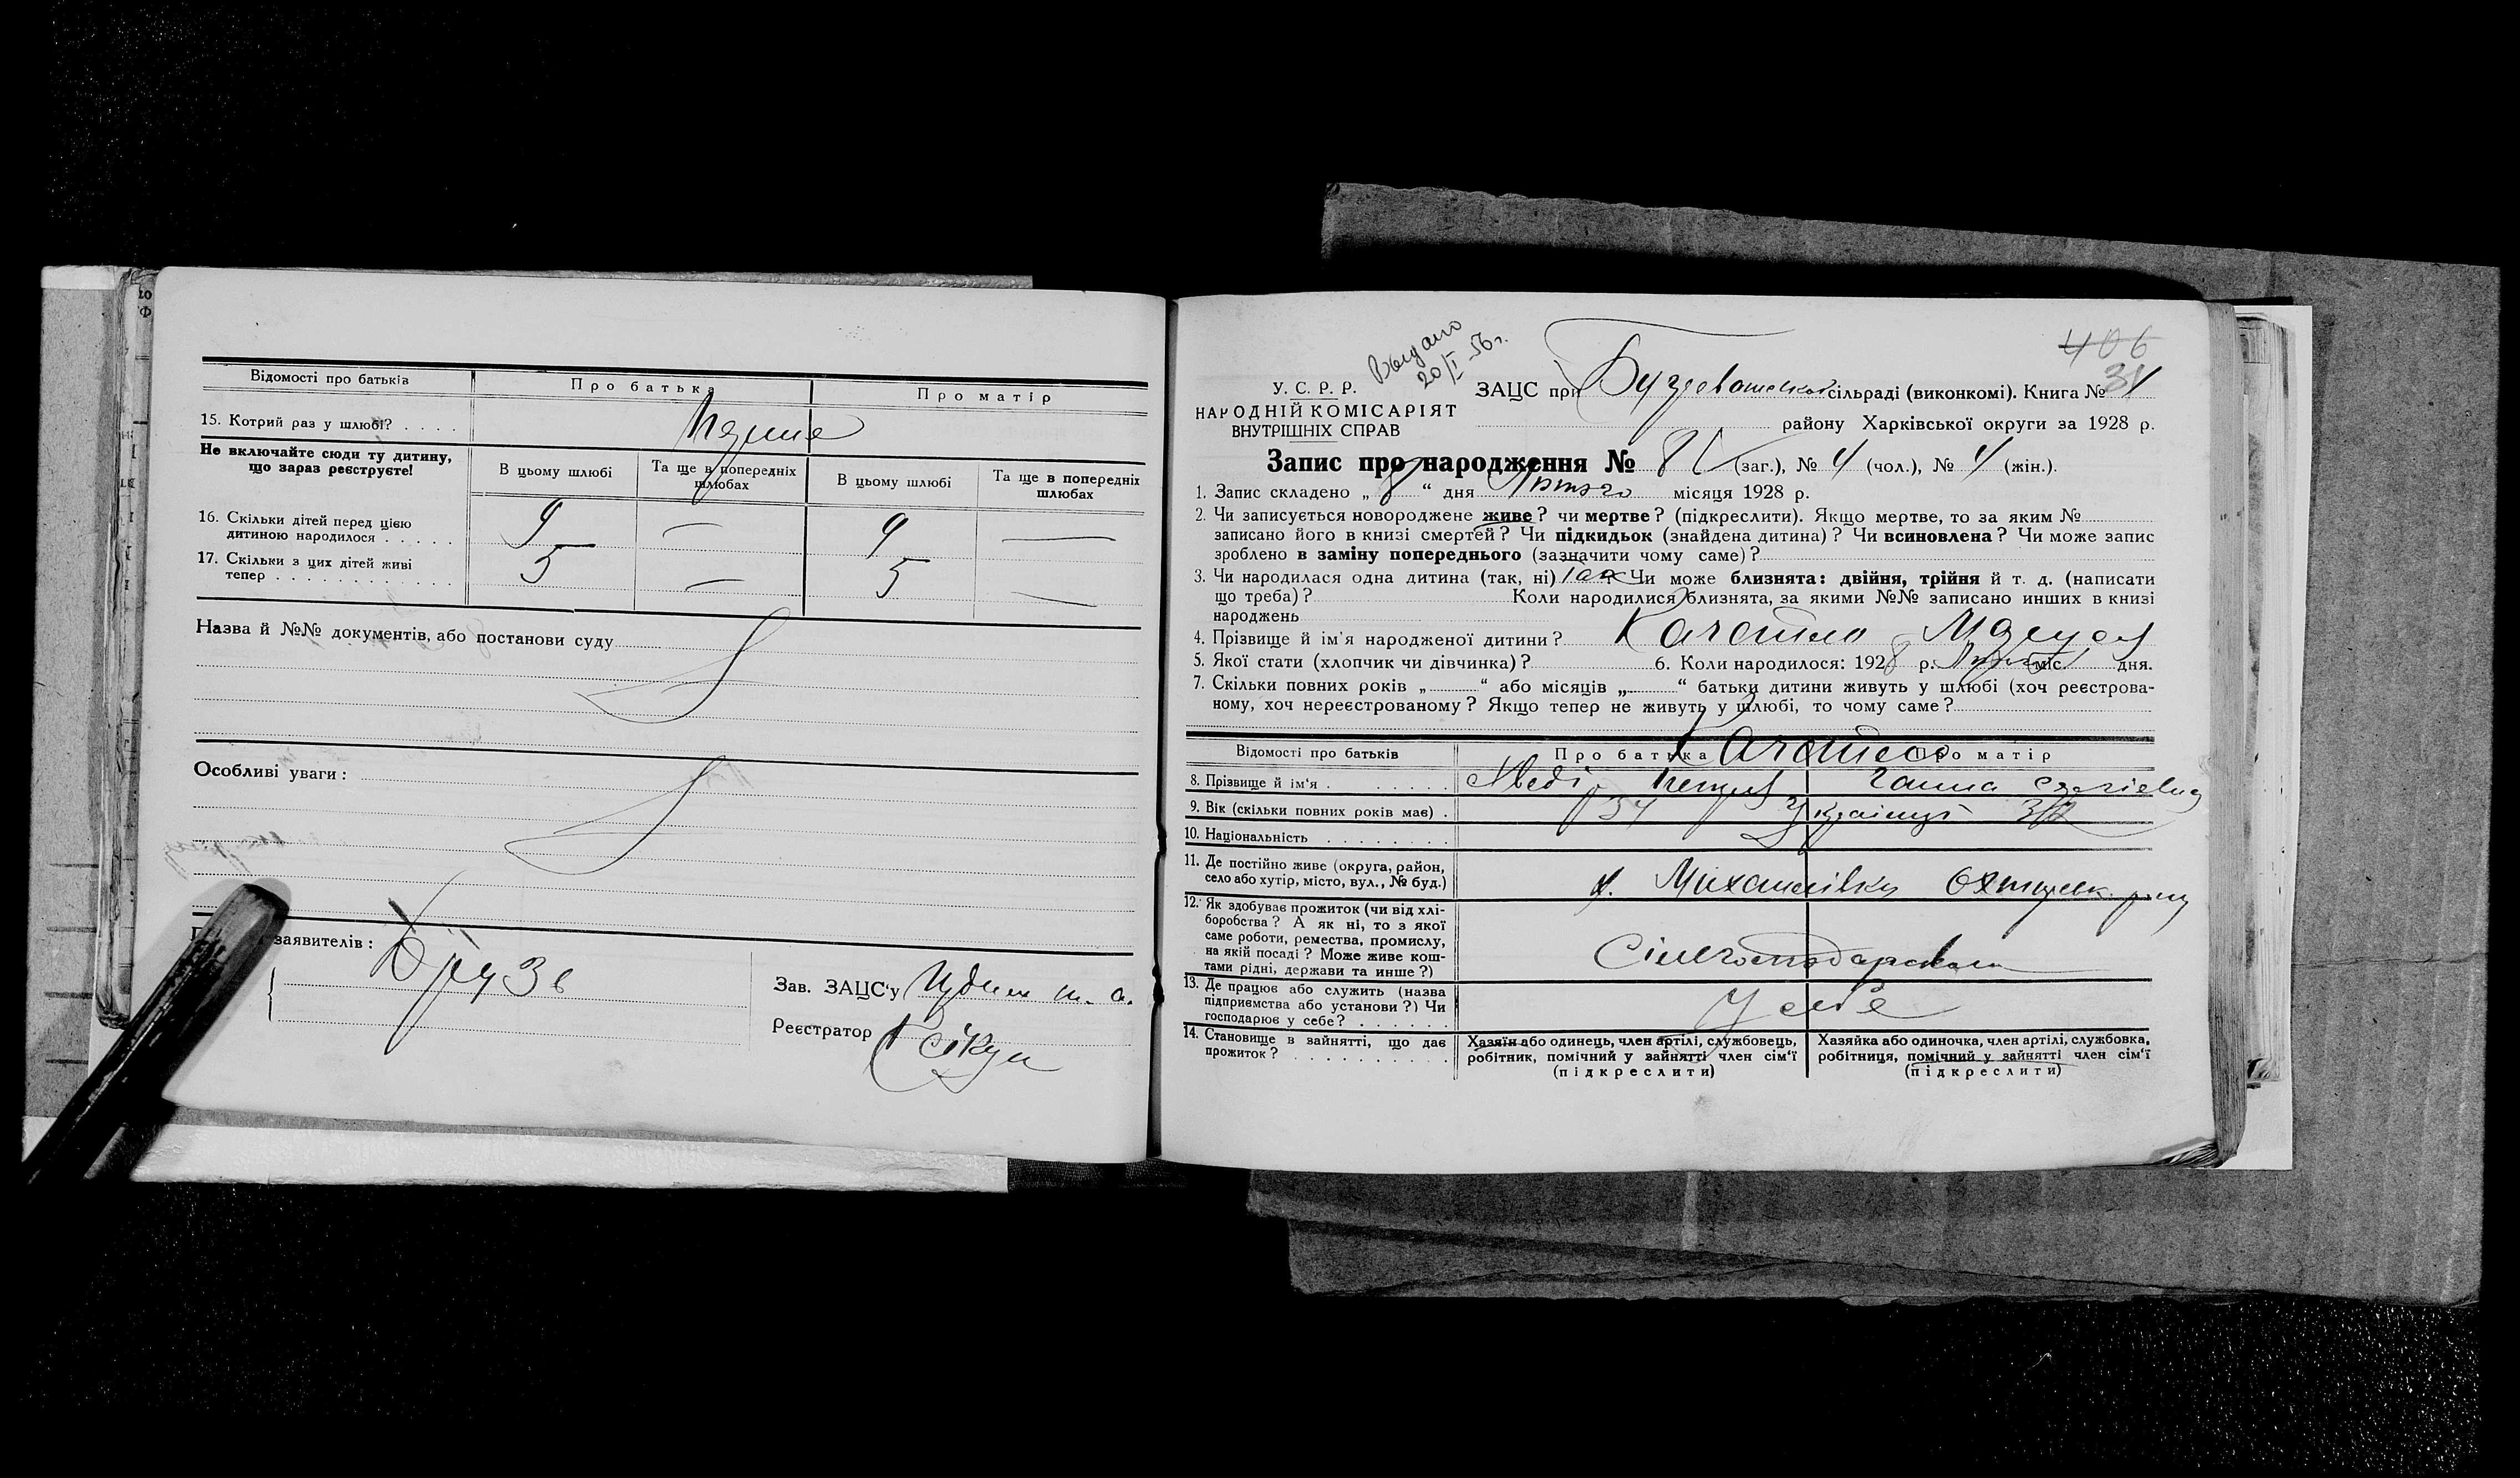 Відомості про батьків
Про батька
Про матір
15. Котрий раз у шлюбі? . . . .
Не включайте сюди ту дитину,
що зараз реєструєте!
В цьому шлюбі
Та ще в попередніх
шлюбах
В цьому шлюбі
Та ще в попередніх
шлюбах
16. Скільки дітей перед цією
дитиною народилося . . . . .
—
—
17. Скільки з цих дітей живі
тепер . . . . . . . . . . . .
5 — 5 —
Назва й №№ документів, або постанови суду
Особливі уваги:
заявителів:
Зав. ЗАЦС'у
Реєстратор
Выдано
20/I 56 г.
406
31
У. С. Р. Р.
НАРОДНІЙ КОМІСАРІЯТ
ВНУТРІШНІХ СПРАВ
ЗАЦС при сільраді (виконкомі). Книга №
району Харківської округи за 1928 р.
Запис про народження № 8 (заг.), № 4 (чол.), № 4 (жін.).
1. Запис складено „ 8 “ дня Лютого місяця 1928 р.
2. Чи записується новороджене живе? чи мертве? (підкреслити). Якщо мертве, то за яким №
записано його в книзі смертей? Чи підкидьок (знайдена дитина)? Чи всиновлена? Чи може запис
зроблено в заміну попереднього (зазначити чому саме)?
3. Чи народилася одна дитина (так, ні) так Чи може близнята: двійня, трійня й т. д. (написати
що треба)? Коли народилися близнята, за якими №№ записано инших в книзі
народжень
4. Прізвище й ім'я народженої дитини?
5. Якої стати (хлопчик чи дівчинка)? 6. Коли народилося: 1928 р. міс. дня.
7. Скільки повних років „ “ або місяців „ “ батьки дитини живуть у шлюбі (хоч реєстрова-
ному, хоч нереєстрованому? Якщо тепер не живуть у шлюбі, то чому саме?
Відомості про батьків
Про батька
Про матір
8. Прізвище й ім'я . . . . . . . Ганна
9. Вік (скільки повних років має) .
10. Національність . . . . . . . . Українці
11. Де постійно живе (округа, район,
село або хутір, місто, вул., № буд.)
х. Михайлівка
12. Як здобуває прожиток (чи від хлі-
боробства? А як ні, то з якої
саме роботи, ремества, промислу,
на якій посаді? Може живе кош-
тами рідні, держави та инше?)
13. Де працює або служить (назва
підприємства або установи?) Чи
господарює у себе? . . . . . .
У себе
14. Становище в зайнятті, що дає
прожиток? . . . . . . . . . .
Хазяїн або одинець, член артілі, службовець,
робітник, помічний у зайнятті член сім'ї
(підкреслити)
Хазяйка або одиночка, член артілі, службовка,
робітниця, помічний у зайнятті член сім'ї
(підкреслити)